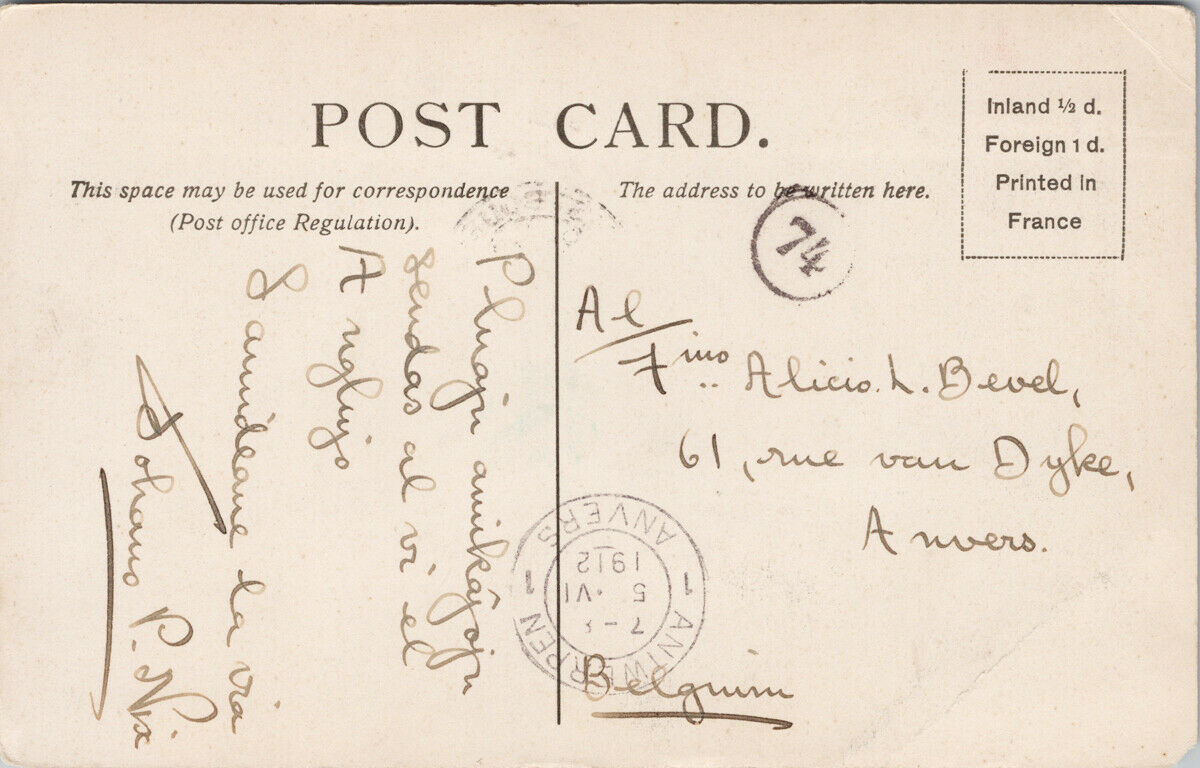 POST CARD.
Inland ½ d.
Foreign 1 d.
Printed in
France
This space may be used for correspondence
(Post office Regulation).
The address to be written here.
74
amikaĵojn
sendas al vi el
Anglujo
Samideane la via
Johano P. Nix
Al
F^ino Alicio. L. Bevel,
61, rue van Dyke,
Anvers.
Belgium
1 ANTWERPEN 1 ANVERS
7 -
5 · VI
1912